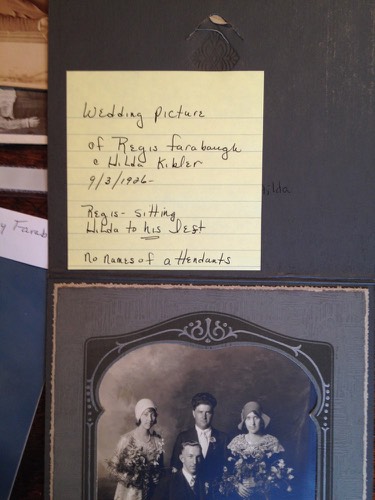 Wedding Picture
of Regis Farabaugh
c Hilda Kibler
9/3/1926-
Regis- Sitting
Hilda to his Left
No Names of attendants
ilda
y Farab